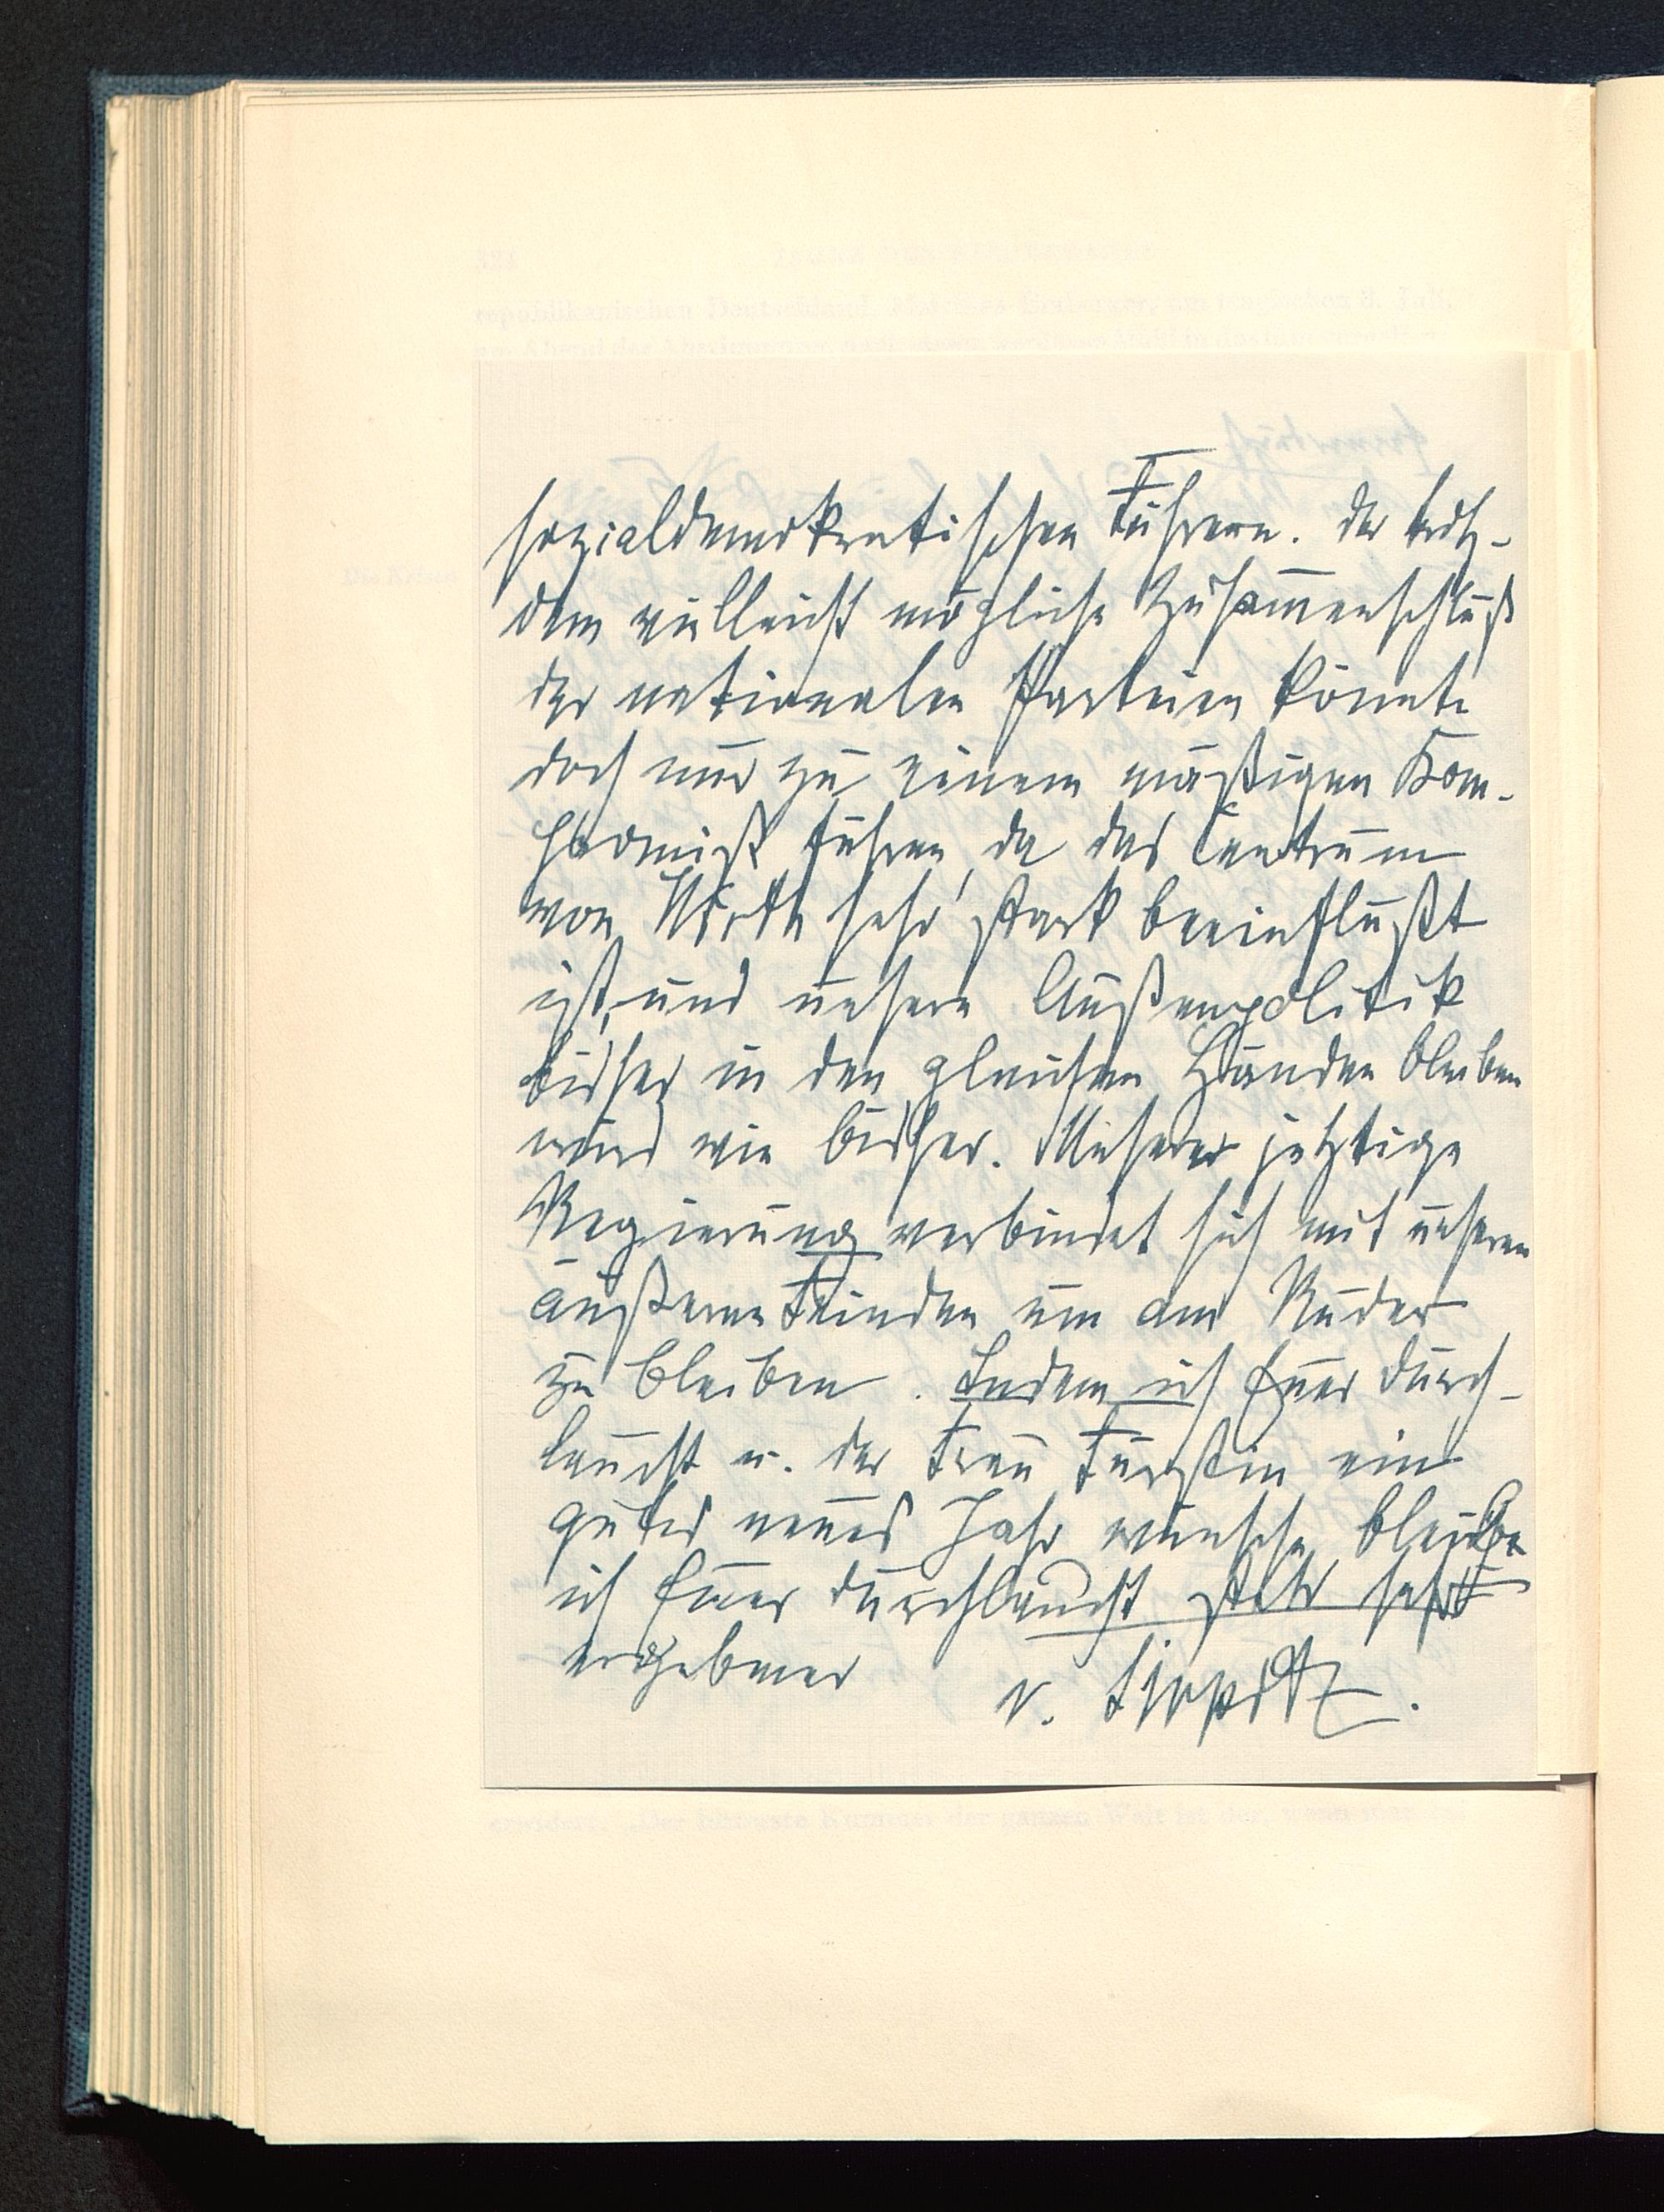 sozialdemokratischen Führern. Der trotz-
dem vielleicht mögliche Zusammenschluß
der nationalen Parteien könnte
doch nur zu einem mäßigen Kom-
promiß führen, da das Centrum
von Wirth sehr stark beeinflußt
ist, und unsere Außenpolitik
bisher in den gleichen Händen bleiben
wird wie bisher. Unsere jetzige
Regierung verbindet sich mit unseren
äußeren Feinden um am Ruder
zu bleiben. Indem ich Euer Durch-
laucht u. der Frau Fürstin ein
gutes neues Jahr wünsche, bleibe
ich Euer Durchlaucht stets sehr
ergebener
v. Tirpitz.